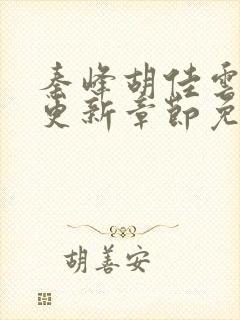 秦峰胡佳雲
更新章節免
胡善安